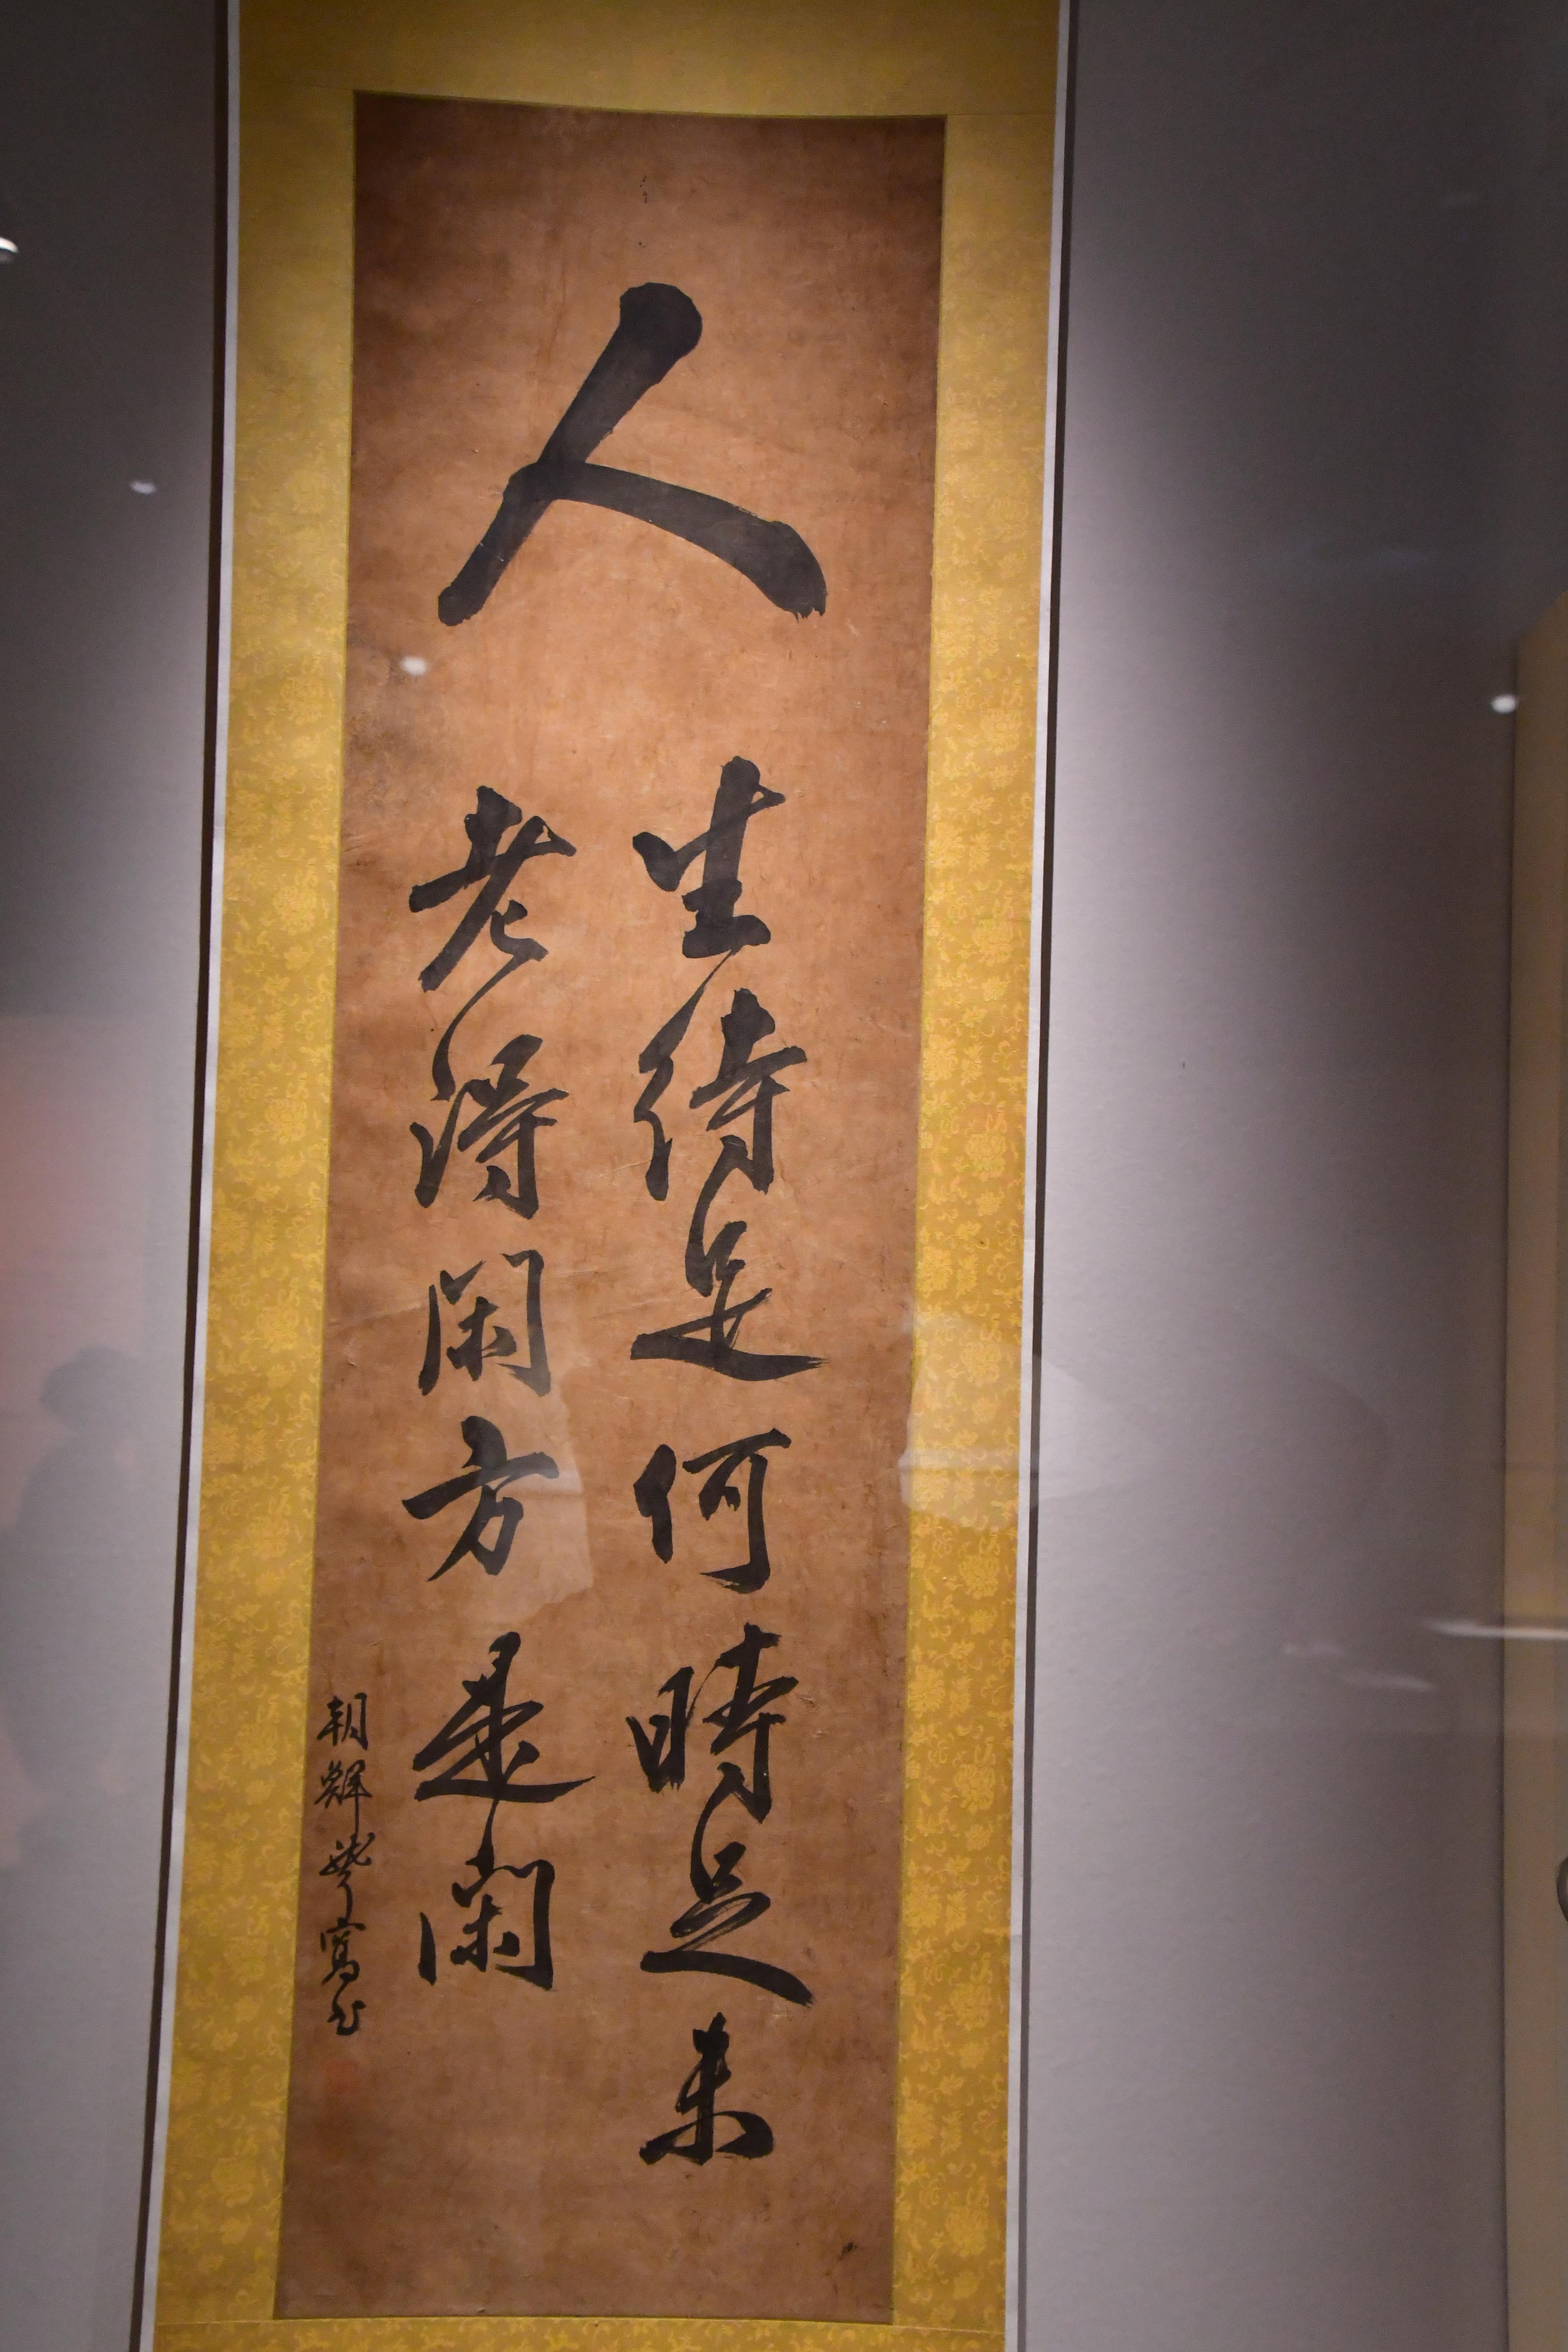 人
生待足何時足未
老得閑方是閑
朝輝 寫